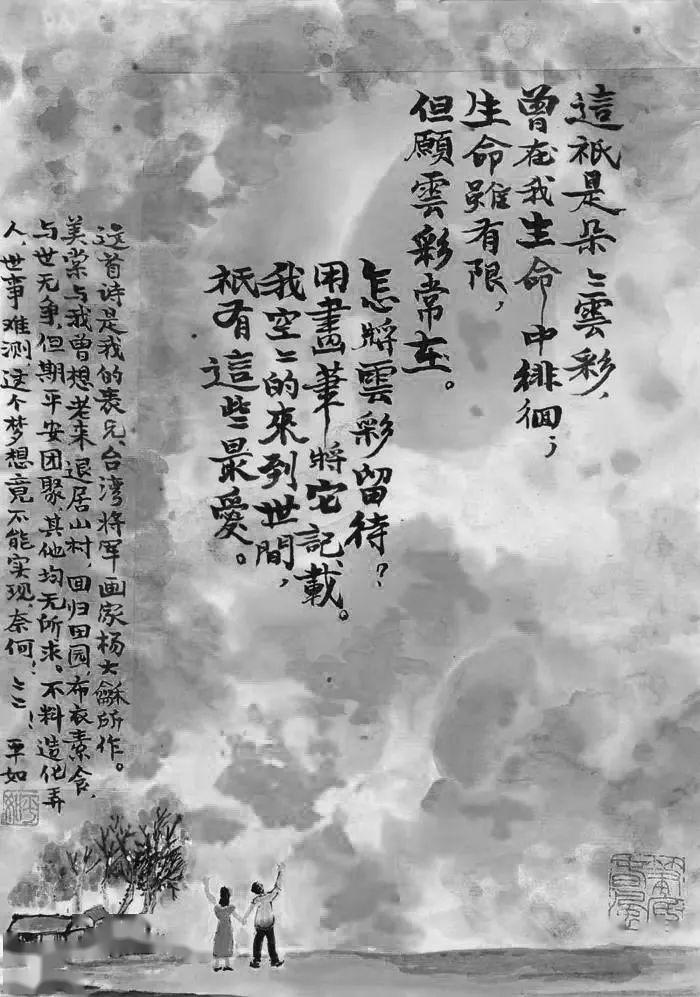 這祇是朵〻雲彩，
曾在我生命中徘徊；
生命雖有限，
但願雲彩常在。
怎將雲彩留待？
用畫筆將它記載。
我空〻的來到世間，
祇有這些最愛。
这首诗是我的表兄、台湾将军画家杨大龢所作。
美棠与我曾想老来退居山村，回归田园，布衣素食，
与世无争，但期平安团聚，其他均无所求。不料造化弄
人，世事难测，这个梦想竟不能实现，奈何！〻〻！ 平如